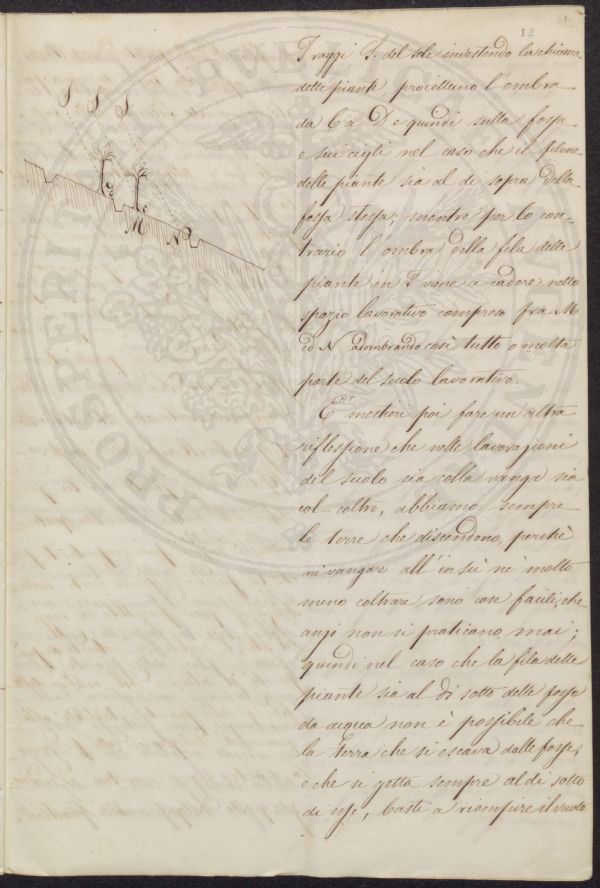 12
I raggi S. del sole investendo la chioma
delle piante, proiettano l'ombra
da C a D e quindi sulla fossa
e sui cigli nel caso che il filone
delle piante sia al di sopra della
fossa stessa; mentre per lo con-
trario l'ombra della fila delle
piante in F viene a cadere nello
spazio lavorativo compreso fra M
ed N adombrando così tutto o molta
parte del suolo lavorativo.
E' mestieri poi fare un'altra
riflessione che nelle lavorazioni
del suolo sia colla vanga sia
col coltro, abbiamo sempre
le terre che discendono, perchè
nè vangare all'in sù nè molto
meno coltrare sono cose facili, che
anzi non si praticano mai;
quindi nel caso che la fila delle
piante sia al di sotto delle fosse
da acqua non è possibile che
la terra che si escava dalle fosse,
e che si getta sempre al di sotto
di esse, basti a riempire il vuoto
S S S
M N
PROSPERITATI PUBLICAE